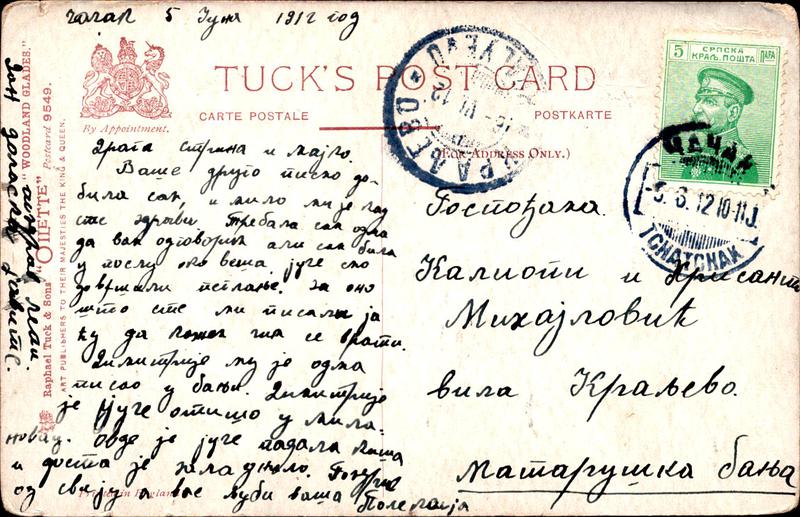 Чачак 5 Јуна 1912 год
TUCK'S POST CARD
CARTE POSTALE
POSTKARTE
By Appointment.
(FOR ADDRESS ONLY.)
5 СРПСКА КРАЉ. ПОШТА ПАРА
КРАЉЕВО
ЧАЧАК
-5.6.12 10-11.J.
TCHATCHAK
Драга стрина и мајко.
Ваше друго писмо до-
била сам, и мило ми је кад
сте здрави. Требала сам одма
да вам одговорим али сам била
у послу око веша, јуче смо
довршили пеглање. За оно
што сте ми писали ја
ћу да кажем чиа се врати.
Димитрије му је одма
писао у бању. Димитрије
је јуче отишо у Мила-
новац. Овде је јуче падала киша
и доста је захладнело. Поздрав
од свију а вас љуби ваша Полексија
Госпођама
Калиопи и Крисанти
Михајловић
вила Краљево.
Матарушка бања
Raphael Tuck & Sons' "OILETTE" "WOODLAND GLADES." Postcard 9549.
ART PUBLISHERS TO THEIR MAJESTIES THE KING & QUEEN.
Printed in England